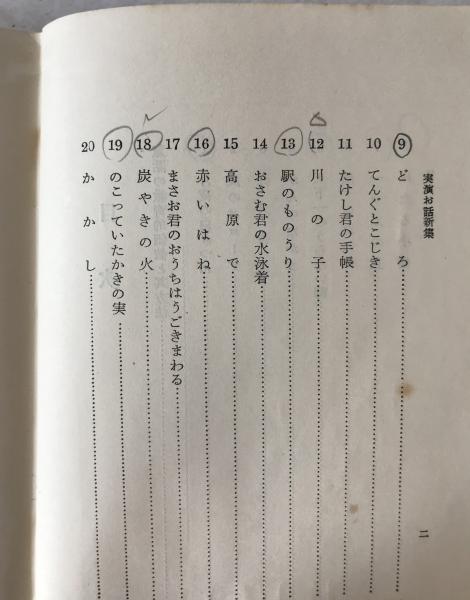 実演お話新集
9 どろ
10 てんぐとこじき
11 たけし君の手帳
12 川の子
13 駅のものうり
14 おさむ君の水泳着
15 高原で
16 赤いはね
17 まさお君のおうちはうごきまわる
18 炭やきの火
19 のこっていたかきの実
20 かかし
二